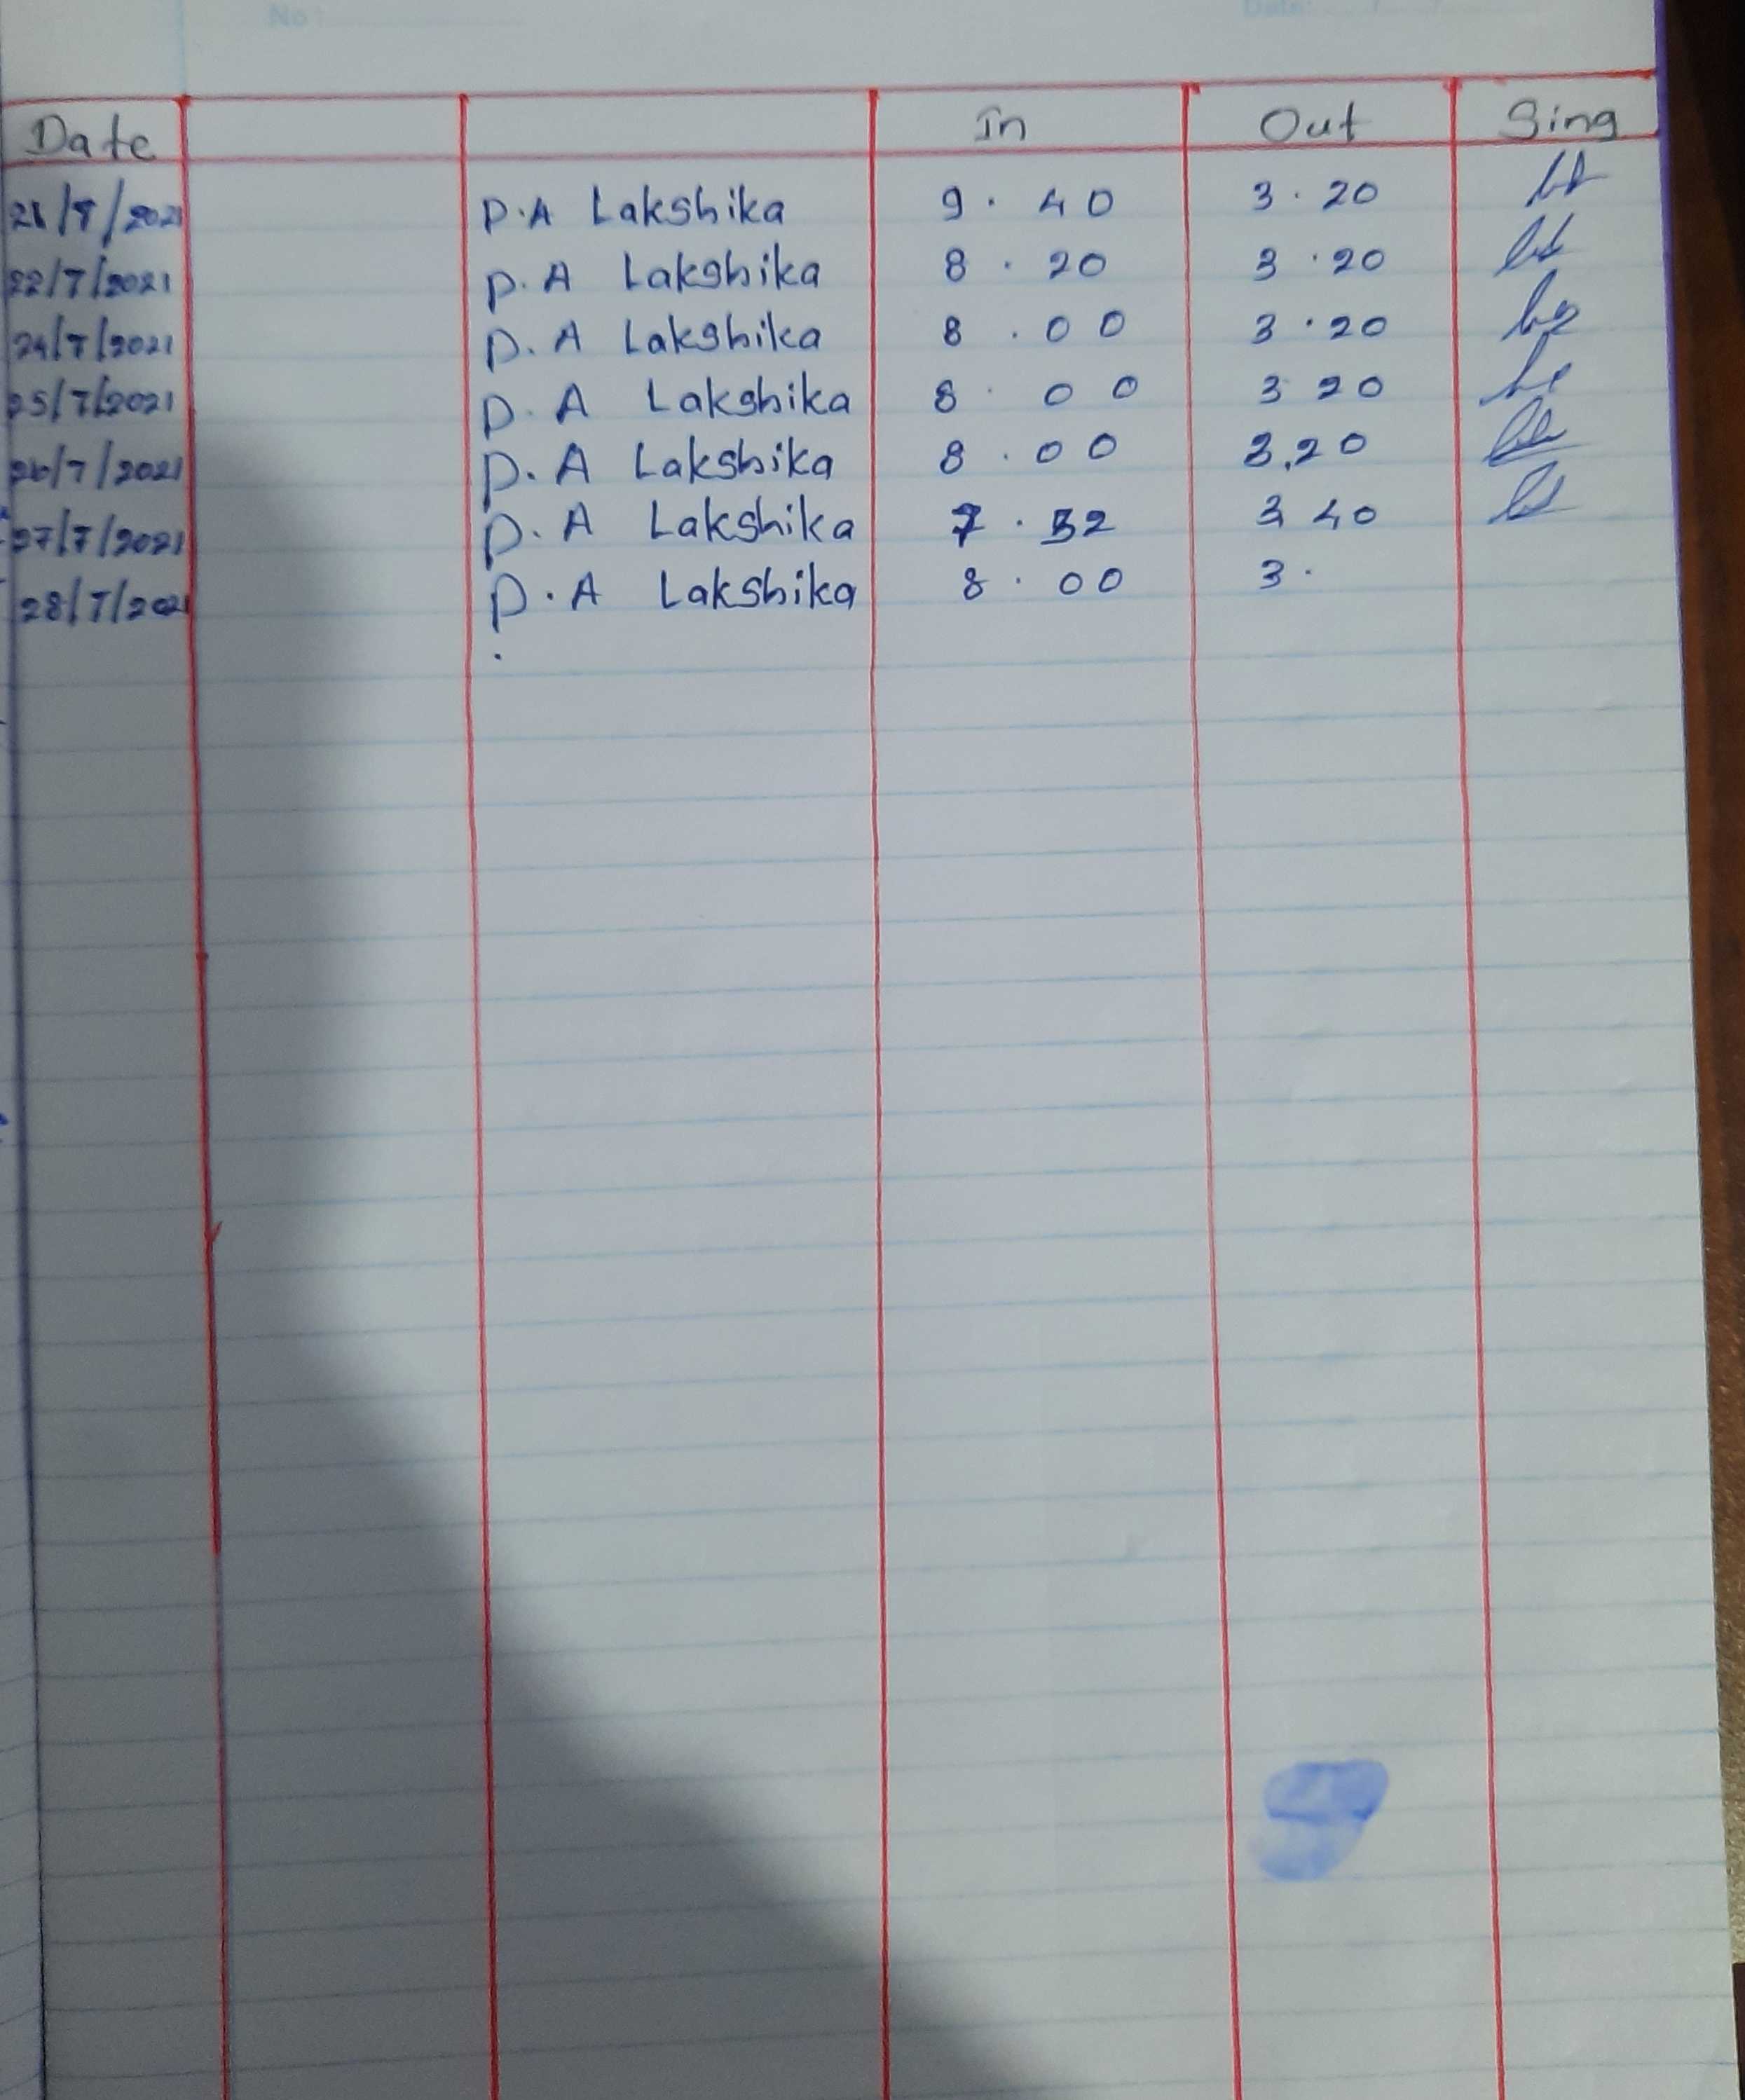 No :
Date:
Date In Out Sing
21/7/2021 D.A Lakshika 9.40 3.20
22/7/2021 D.A Lakshika 8.20 3.20
24/7/2021 D.A Lakshika 8.00 3.20
25/7/2021 D.A Lakshika 8.00 3 20
26/7/2021 D.A Lakshika 8.00 3.20
27/7/2021 D.A Lakshika 7.32 3 40
28/7/2021 D.A Lakshika 8.00 3.